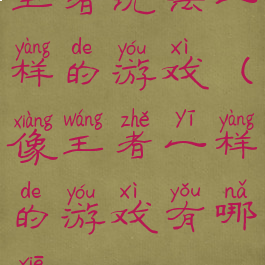 yàng de yóu xì
样 的 游 戏 （
xiàng wáng zhě yī yàng
像 王 者 一 样
de yóu xì yǒu nǎ
的 游 戏 有 哪
xiē